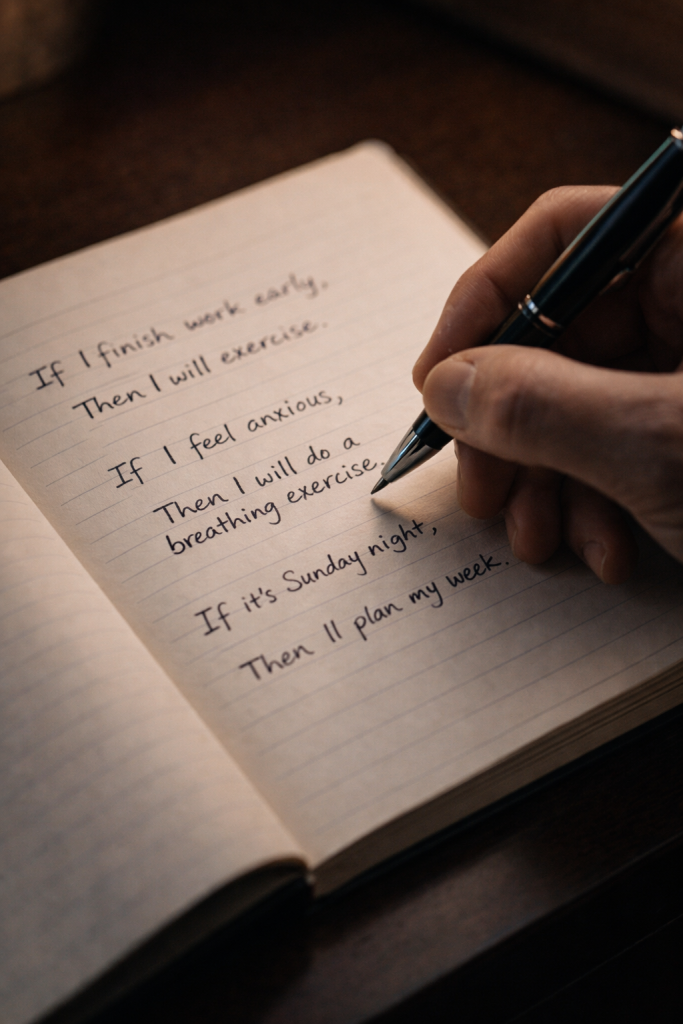 If I finish work early,
Then I will exercise.
If I feel anxious,
Then I will do a
breathing exercise.
If it's Sunday night,
Then ll plan my week.